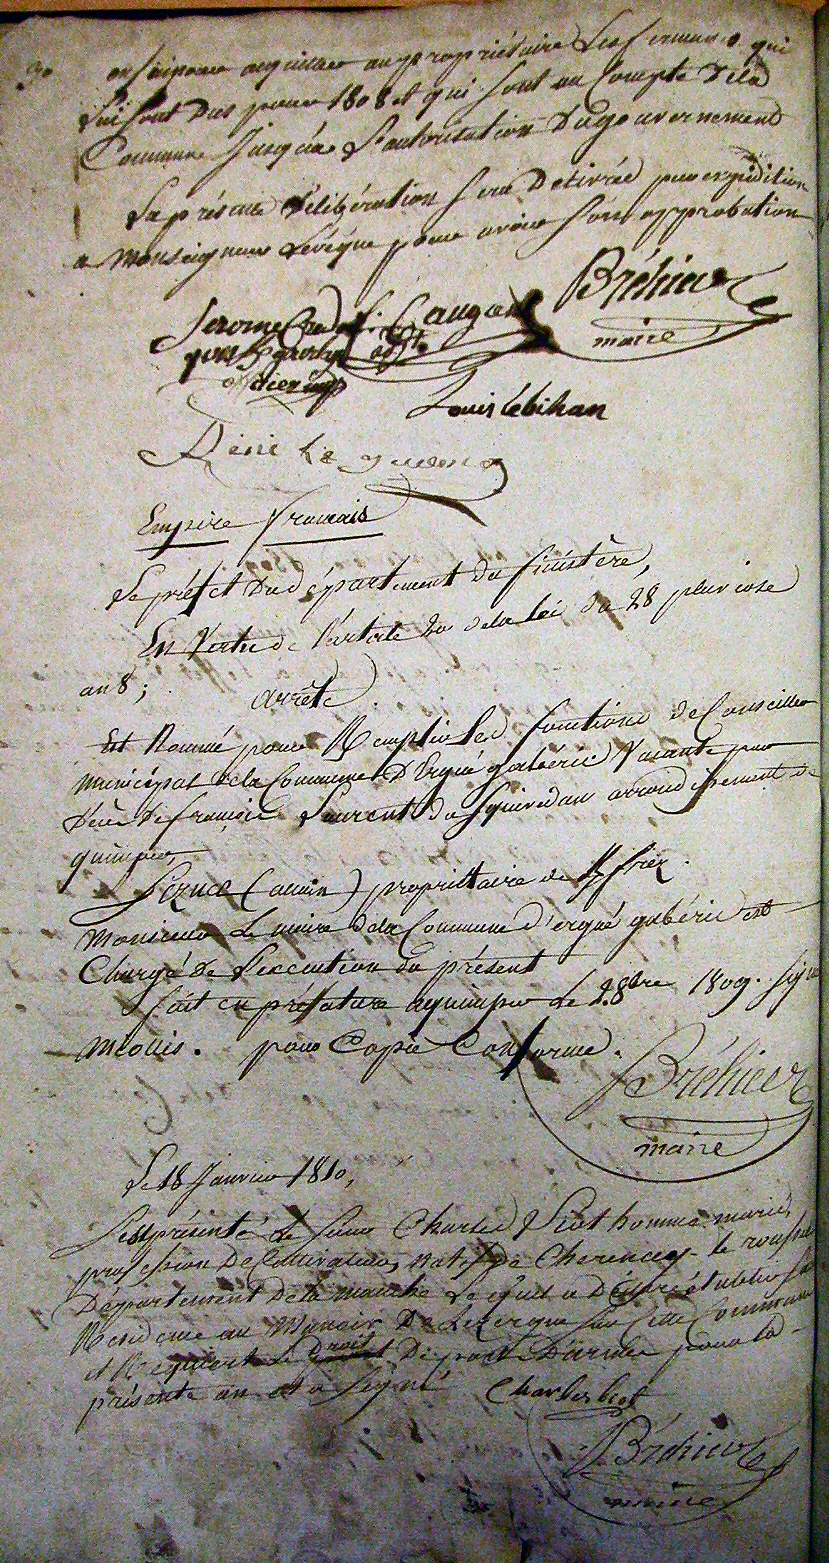 30
au propriétaire Les fermes qui
lui sont Dus pour 1808 et qui sont au Compte Dela
Commune Jusqu'au L'autorisation Du gouvernement
La présente Délibération sera Delivrée par expédition
a Monseigneur L'évêque pour avoir son approbation
Jerome Credou Bréhier
maire
Louis Lebihan
René
Empire Francais
Le préfet Du département du finistère,
En Vertu de l'article 20 dela loi du 28 pluviose
an 8 ; arrête
Est Nommé pour Remplir Les fonctions de Conseiller
Municipal dela Commune D'Ergué gabéric Vacante par
Décès De francois Laurent de Squividan arrondissement de
quimper,
Lozach (alain) propriétaire de
Monsieur Le maire dela Commune d'ergué gabéric est
Chargé De L'execution du présent
fait en préfature a quimper Le 2. 8bre 1809. signé
Miollis. pour Copie Conforme.
Bréhier
maire
Le 18 Janvier 1810,
s'est présenté Le sieur Charles Biot homme marié,
profession De Cultivateur, natif de Cherencey le roussel
Département De la manche Lequel a Declaré établir sa
Residence au Manoir De Lezergué sur Cette Commune
et Requiert Le Droit De port D'armes pour la
présente an et a signé Charles biot
Bréhier
maire